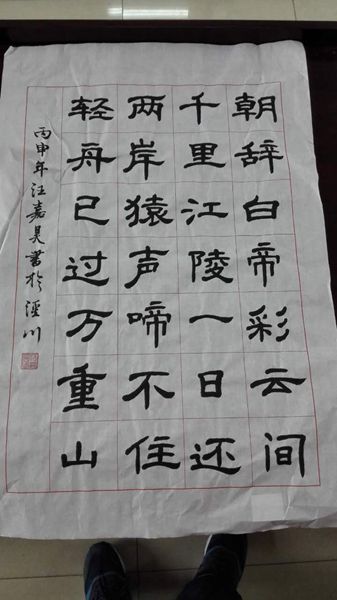 朝辞白帝彩云间
千里江陵一日还
两岸猿声啼不住
轻舟已过万重山
丙申年汪嘉昊书於泾川